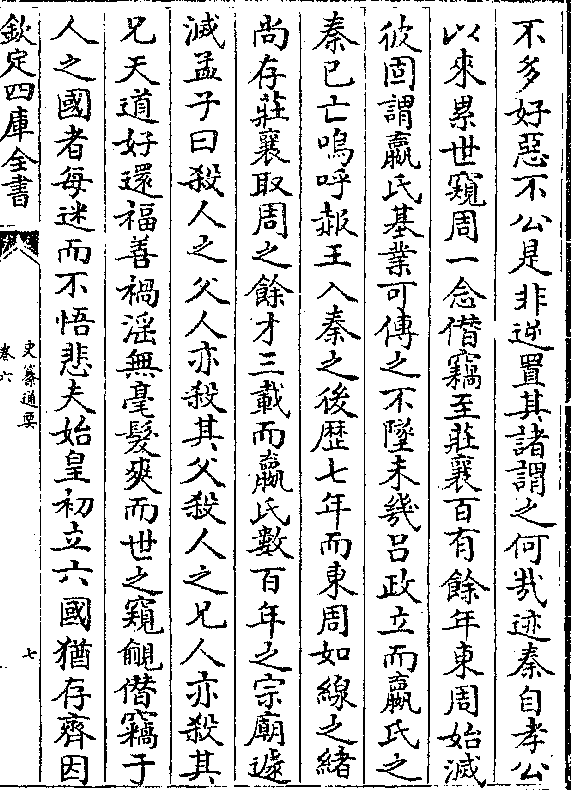 不多好惡不公是非逆置其諸謂之何哉迹秦自孝公
以來累世窺周一念僭竊至莊襄百有餘年東周始滅
彼固謂嬴氏基業可傳之不墜未幾呂政立而嬴氏之
秦已亡嗚呼赧王入秦之後歴七年而東周如線之緒
尚存莊襄取周之餘才三載而嬴氏數百年之宗廟遽
滅孟子曰殺人之父人亦殺其父殺人之兄人亦殺其
兄天道好還福善禍淫無毫髮爽而世之窺覦僭竊于
人之國者每迷而不悟悲夫始皇初立六國猶存齊因
欽定四庫全書
史纂通要
卷六
七